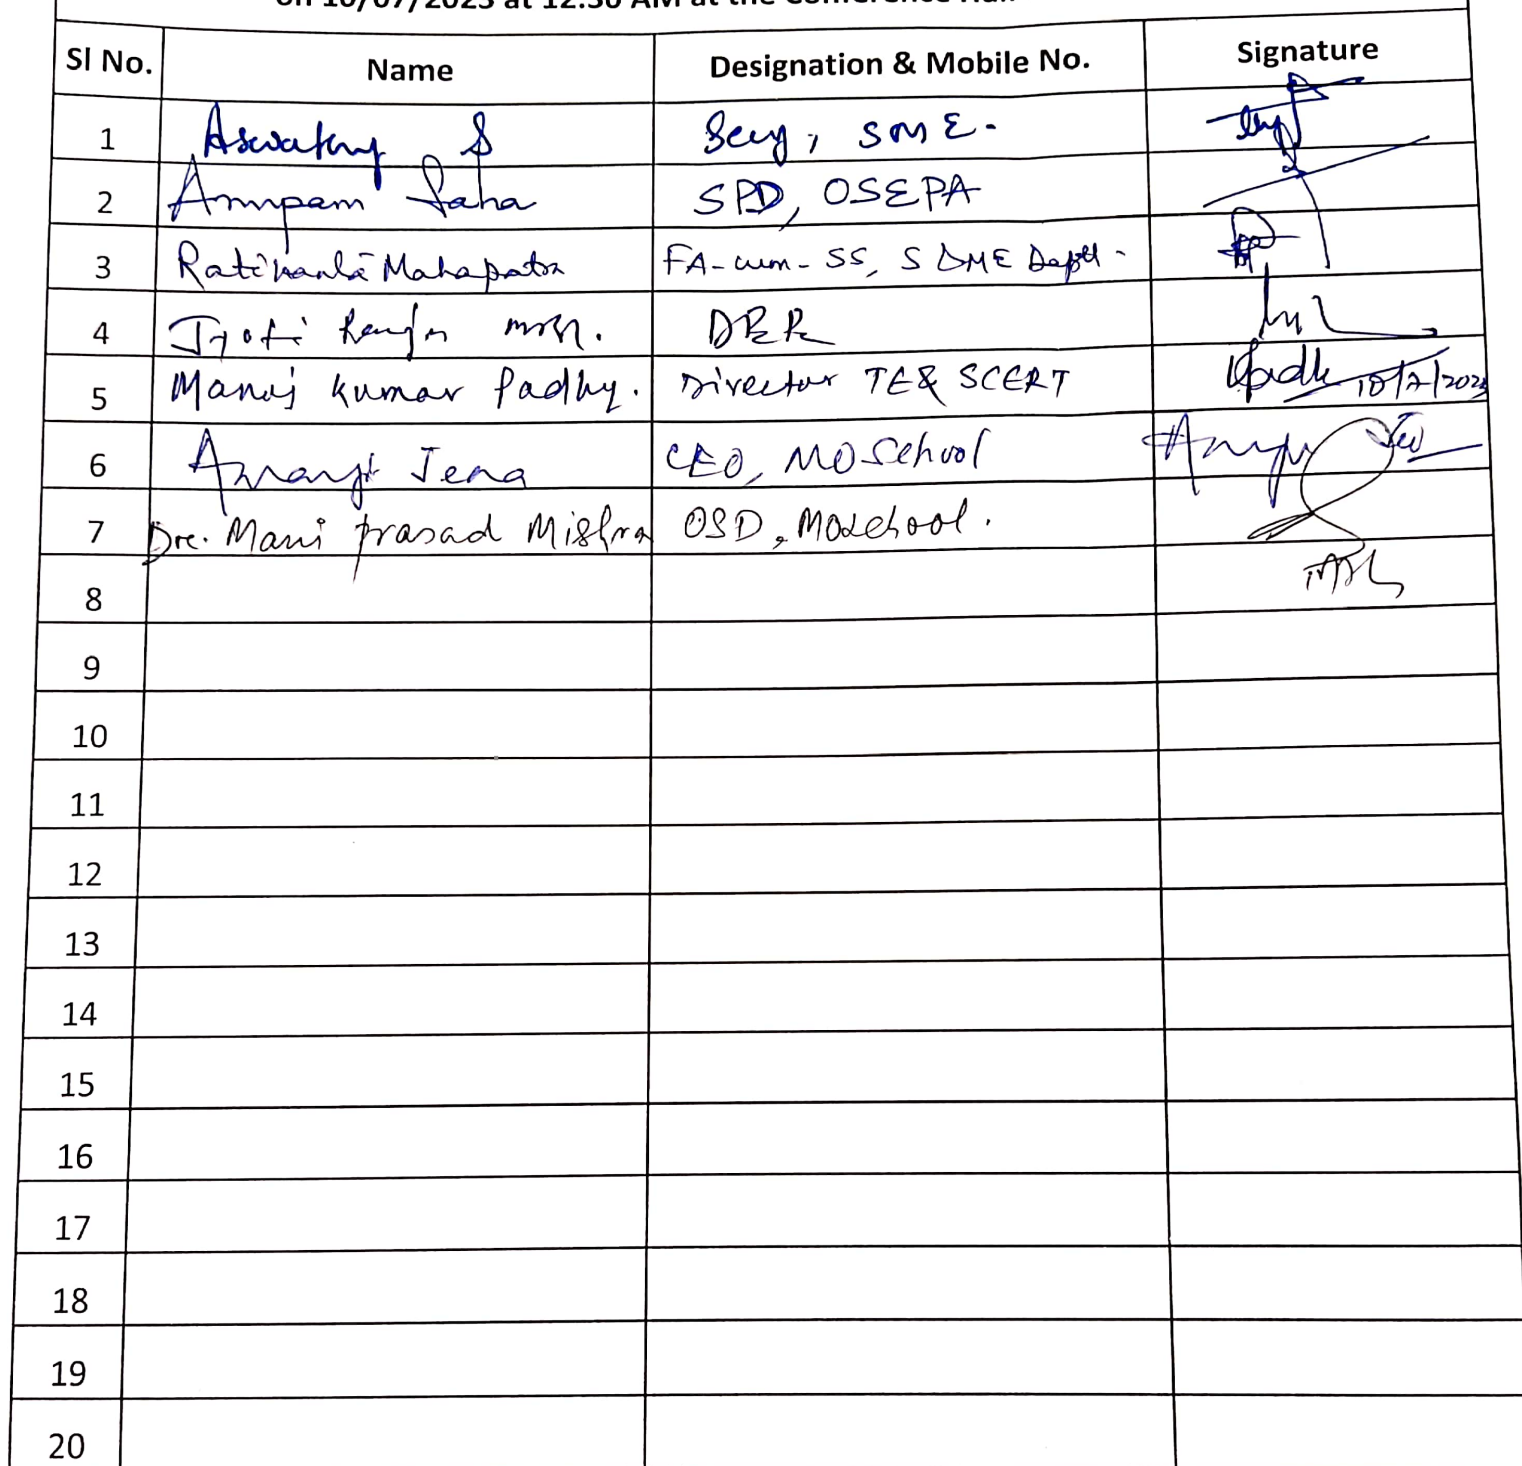 on 10/07/2023 at 12.30 AM at the Conference Hall
Sl No. Name Designation & Mobile No. Signature
1 Aswathy S Secy, SME.
2 Anupam Saha SPD, OSEPA
3 Ratikanta Mahapatra FA-cum-SS, S &ME Deptt.
4 Jyoti Ranjan
5 Manoj Kumar Padhy. Director TE& SCERT 10/7/2023
6 Jena CEO, MO School
7 Dr. Mani Prasad Mishra OSD, Mo School.
8
9
10
11
12
13
14
15
16
17
18
19
20